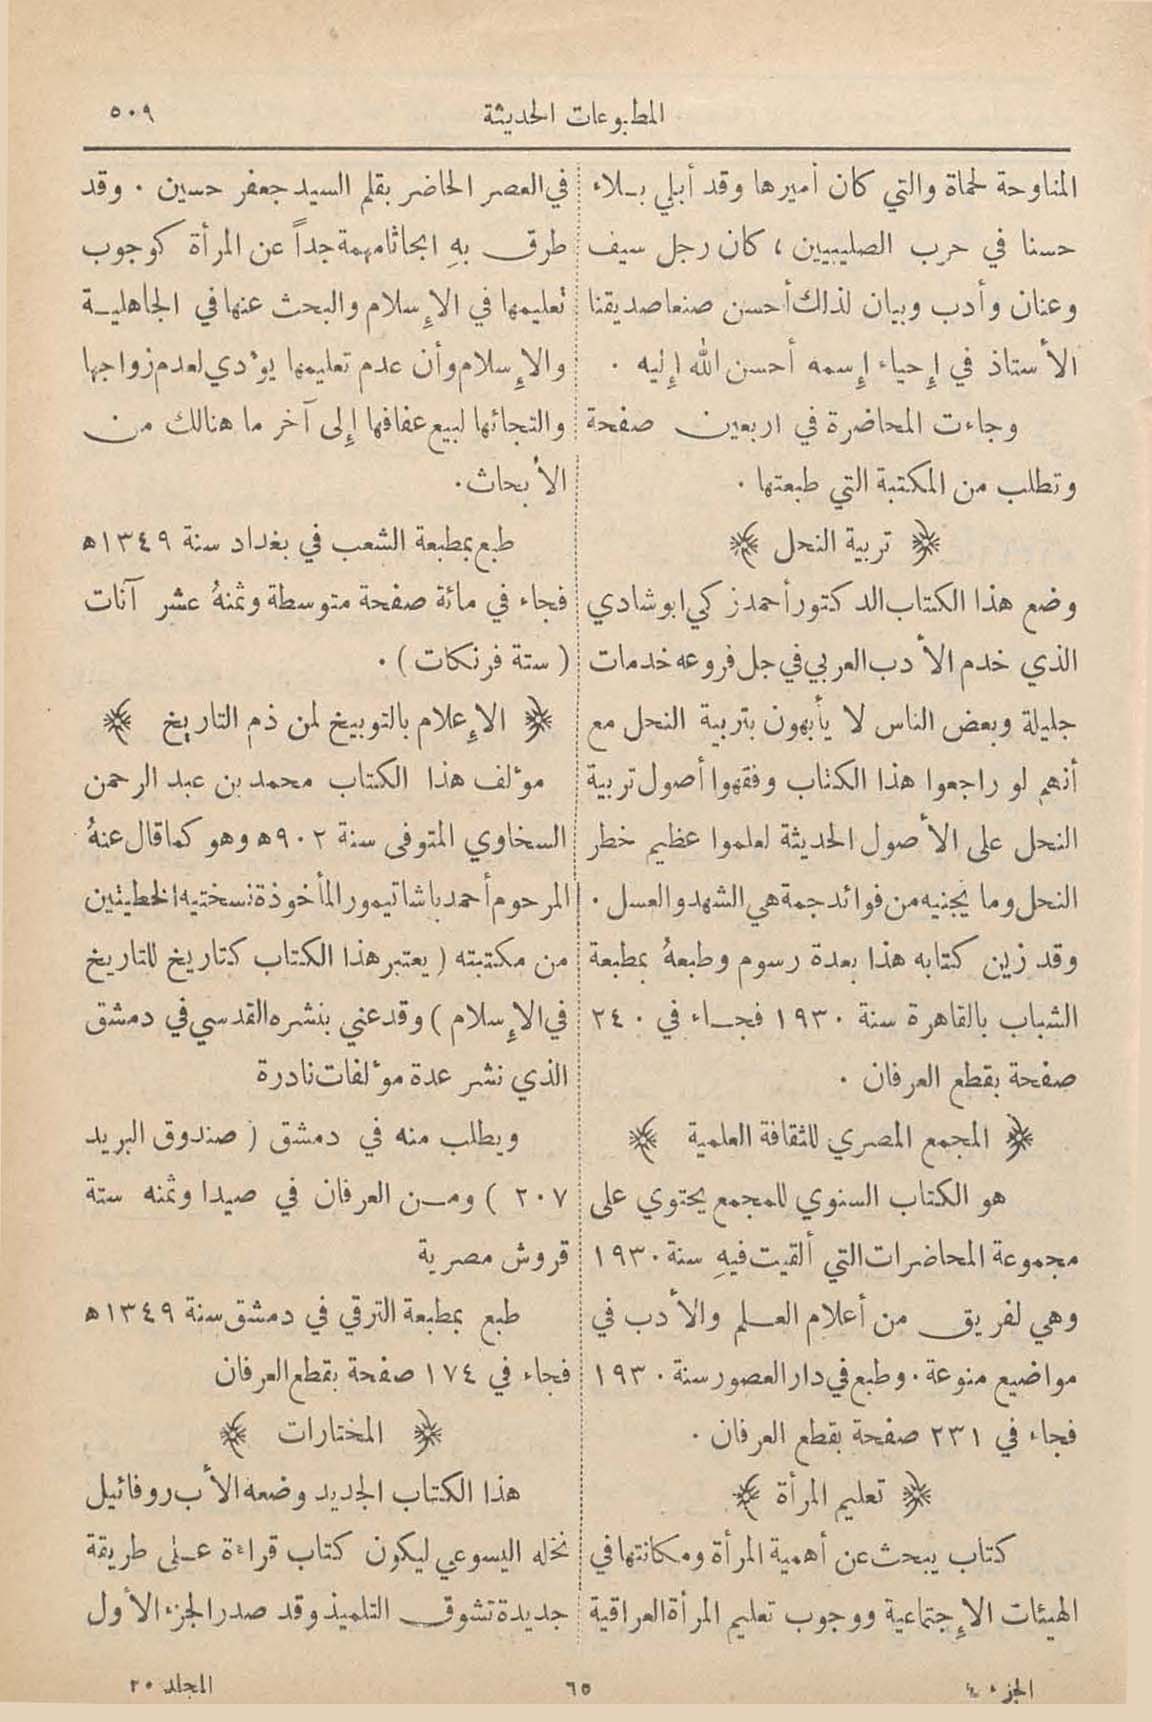 المطبوعات الحديثة
٥٠٩
المناوحة لحماة والتي كان أميرها وقد أبلي بـلاء
حسنا في حرب الصليبيين ، كان رجل سيف
وعنان وأدب وبيان لذلك أحسن صنعا صديقنا
الأستاذ في إحياء إسمه أحسن الله إليه .
وجاءت المحاضرة في اربعين صفحة
وتطلب من المكتبة التي طبعتها .
﴿ تربية النحل ﴾
وضع هذا الكتاب الدكتور أحمد زكي ابو شادي
الذي خدم الأدب العربي في جل فروعه خدمات
جليلة وبعض الناس لا يأبهون بتربية النحل مع
أنهم لو راجعوا هذا الكتاب وفقهوا أصول تربية
النحل على الأصول الحديثة لعلموا عظيم خطر
النحل وما يجنيه من فوائد جمة هي الشهد والعسل .
وقد زين كتابه هذا بعدة رسوم وطبعهُ بمطبعة
الشباب بالقاهرة سنة ١٩٣٠ فجـاء في ٢٤٠
صفحة بقطع العرفان .
﴿ المجمع المصري للثقافة العلمية ﴾
هو الكتاب السنوي للمجمع يحتوي على
مجموعة المحاضرات التي ألقيت فيهِ سنة ١٩٣٠
وهي لفريق من أعلام العـلم والأدب في
مواضيع منوعة . وطبع في دار العصور سنة ١٩٣٠
فجاء في ٢٣١ صفحة بقطع العرفان .
﴿ تعليم المرأة ﴾
كتاب يبحث عن أهمية المرأة ومكانتها في
الهيئات الإجتماعية ووجوب تعليم المرأة العراقية
في العصر الحاضر بقلم السيد جعفر حسين . وقد
طرق بهِ ابحاثا مهمة جداً عن المرأة كوجوب
تعليمها في الإسلام والبحث عنها في الجاهليـة
والإسلام وأن عدم تعليمها يؤدي لعدم زواجها
والتجائها لبيع عفافها إلى آخر ما هنالك من
الأبحاث .
طبع بمطبعة الشعب في بغداد سنة ١٣٤٩ه
فجاء في مائة صفحة متوسطة وثمنهُ عشر آنات
( ستة فرنكات ) .
﴿ الإعلام بالتوبيخ لمن ذم التاريخ ﴾
مؤلف هذا الكتاب محمد بن عبد الرحمن
السخاوي المتوفى سنة ٩٠٢ه وهو كما قال عنهُ
المرحوم أحمد باشا تيمور المأخوذة نسختيه الخطيتين
من مكتبته ( يعتبر هذا الكتاب كتاريخ للتاريخ
في الإسلام ) وقد عني بنشره القدسي في دمشق
الذي نشر عدة مؤلفات نادرة
ويطلب منه في دمشق ( صندوق البريد
٢٠٧ ) ومـن العرفان في صيدا وثمنه ستة
قروش مصرية
طبع بمطبعة الترقي في دمشق سنة ١٣٤٩ه
فجاء في ١٧٤ صفحة بقطع العرفان
﴿ المختارات ﴾
هذا الكتاب الجديد وضعه الأب روفائيل
نخله اليسوعي ليكون كتاب قراءة عـلى طريقة
جديدة تشوق التلميذ وقد صدر الجزء الأول
الجزء ٤
٦٥
المجلد ٢٠